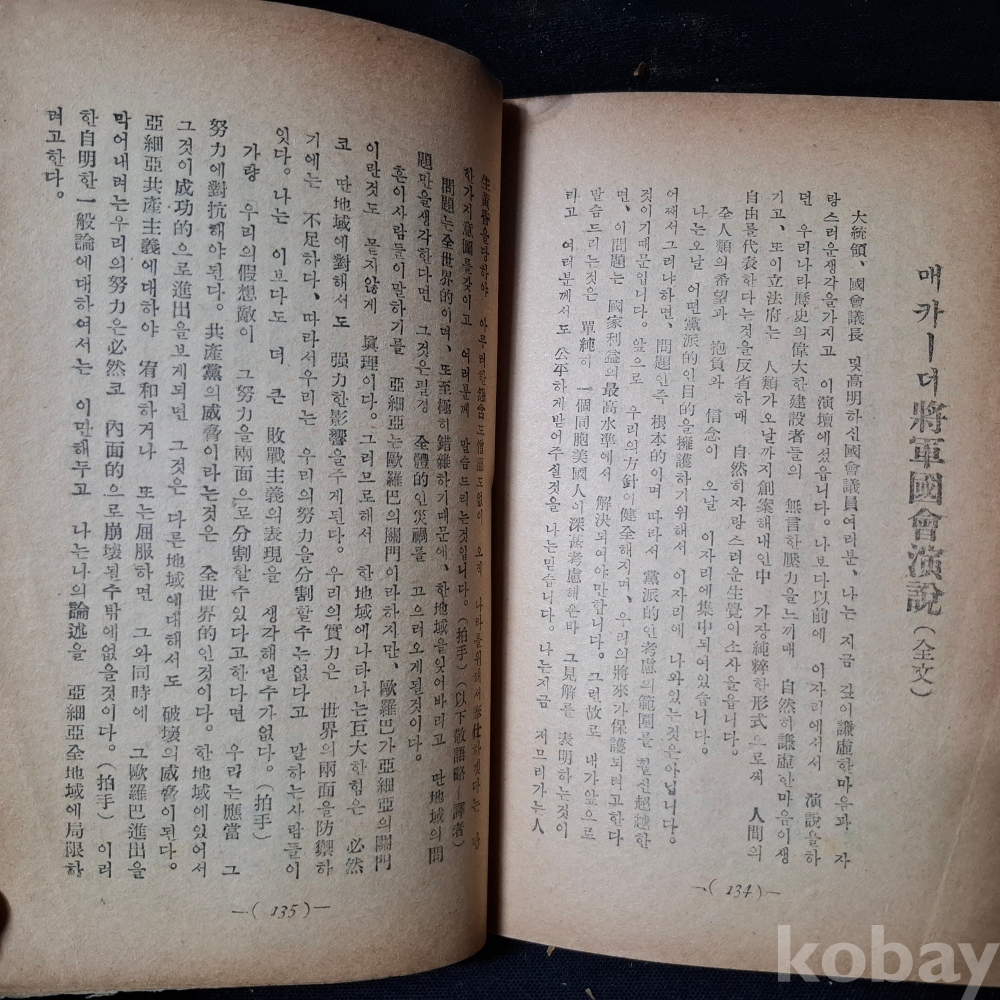 매카ー더將軍國會演說(全文)
大統領、國會議長 및 高明하신國會議員여러분、나는 지금 깊이謙虛한마음과 자
랑스러운생각을가지고 이演壇에섰읍니다。나보다以前에 이자리에서서 演說을하
던 우리나라歷史의偉大한建設者들의 無言한壓力을느끼매 自然히謙虛한마음이생
기고、또이立法府는 人類가오날까지創案해내인中 가장純粹한形式으로써 人間의
自由를代表한다는것을反省하매 自然히자랑스러운生覺이소사올읍니다。
全人類의希望과 抱負와 信念이 오날 이자리에集中되여있습니다。
나는오날 어떤黨派的인目的을擁護하기위해서 이자리에 나와있는것은아닙니다。
어째서그러냐하면、問題인즉 根本的이며 따라서 黨派的인考慮의範圍를 훨신超越한
것이기때문입니다。앞으로 우리의方針이健全해지며、우리의將來가保護되려고한다
면、이問題는 國家利益의最高水準에서 解決되여야만합니다。그런故로 내가앞으로
말슴드리는것은 單純히 一個同胞美國人이深甚考慮해온바 그見解를 表明하는것이
라고 여러분께서도 公平하게받어주실것을 나는믿습니다。나는지금 저므러가는人
—(134)—
生黃昏을당하야 아무러한怨念도憎惡도없이 오직 나라를위해서奉仕하겟다는 단
한가지意圖를갖이고 여러분께 말슴드리는것입니다。(拍手)(以下敬語略—譯者)
問題는全世界的이며、또至極히錯雜하기때문에、한地域을잊어바리고 딴地域의問
題만을생각한다면 그것은필경 全體的인災禍를 끄으러오게될것이다。
흔이사람들이말하기를 亞細亞는歐羅巴의關門이라하지만、歐羅巴가亞細亞의關門
이란것도 몰지않게 眞理이다。그러므로해서 한地域에나타나는巨大한힘은 必然
코 딴地域에對해서도 强力한影響을주게된다。우리의實力은 世界의兩面을防禦하
기에는 不足하다、따라서우리는 우리의努力을分割할수는없다고 말하는사람들이
잇다。나는 이보다도 더 큰 敗戰主義의表現을 생각해낼수가없다。(拍手)
가량 우리의假想敵이 그努力을兩面으로分割할수있다고한다면 우리는應當 그
努力에對抗해야된다。共產黨의威脅이라는것은 全世界的인것이다。한地域에있어서
그것이成功的으로進出을보게되면 그것은 다른地域에대해서도 破壞의威脅이된다。
亞細亞共產主義에대하야 宥和하거나 또는屈服하면 그와同時에 그歐羅巴進出을
막어내려는우리의努力은必然코 內面的으로崩壞될수밖에없을것이다。(拍手) 이러
한自明한一般論에대하여서는 이만해두고 나는나의論述을 亞細亞全地域에局限하
려고한다。
—(135)—
kobay